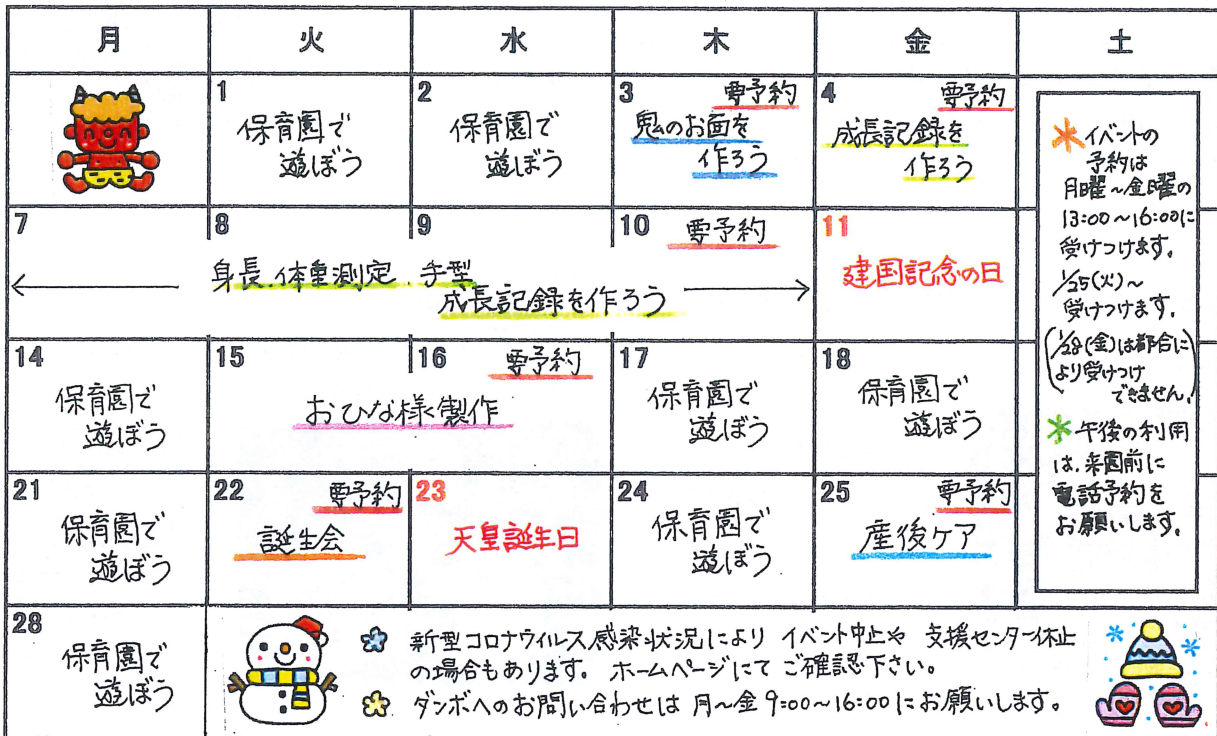 月 火 水 木 金 土
1
保育園で
遊ぼう
2
保育園で
遊ぼう
3 要予約
鬼のお面を
作ろう
4 要予約
成長記録を
作ろう
7 8 9 10 要予約
身長.体重測定.手型
成長記録を作ろう
11
建国記念の日
14
保育園で
遊ぼう
15 16 要予約
おひな様製作
17
保育園で
遊ぼう
18
保育園で
遊ぼう
21
保育園で
遊ぼう
22 要予約
誕生会
23
天皇誕生日
24
保育園で
遊ぼう
25 要予約
産後ケア
28
保育園で
遊ぼう
イベントの
予約は
月曜~金曜の
13:00~16:00に
受けつけます。
1/25(火)~
受けつけます。
(1/28(金)は都合に
より受けつけ
できません。)
午後の利用
は、来園前に
電話予約を
お願いします。
新型コロナウイルス感染状況により イベント中止や 支援センター休止
の場合もあります。 ホームページにて ご確認下さい。
ダンボへのお問い合わせは 月~金 9:00~16:00 にお願いします。